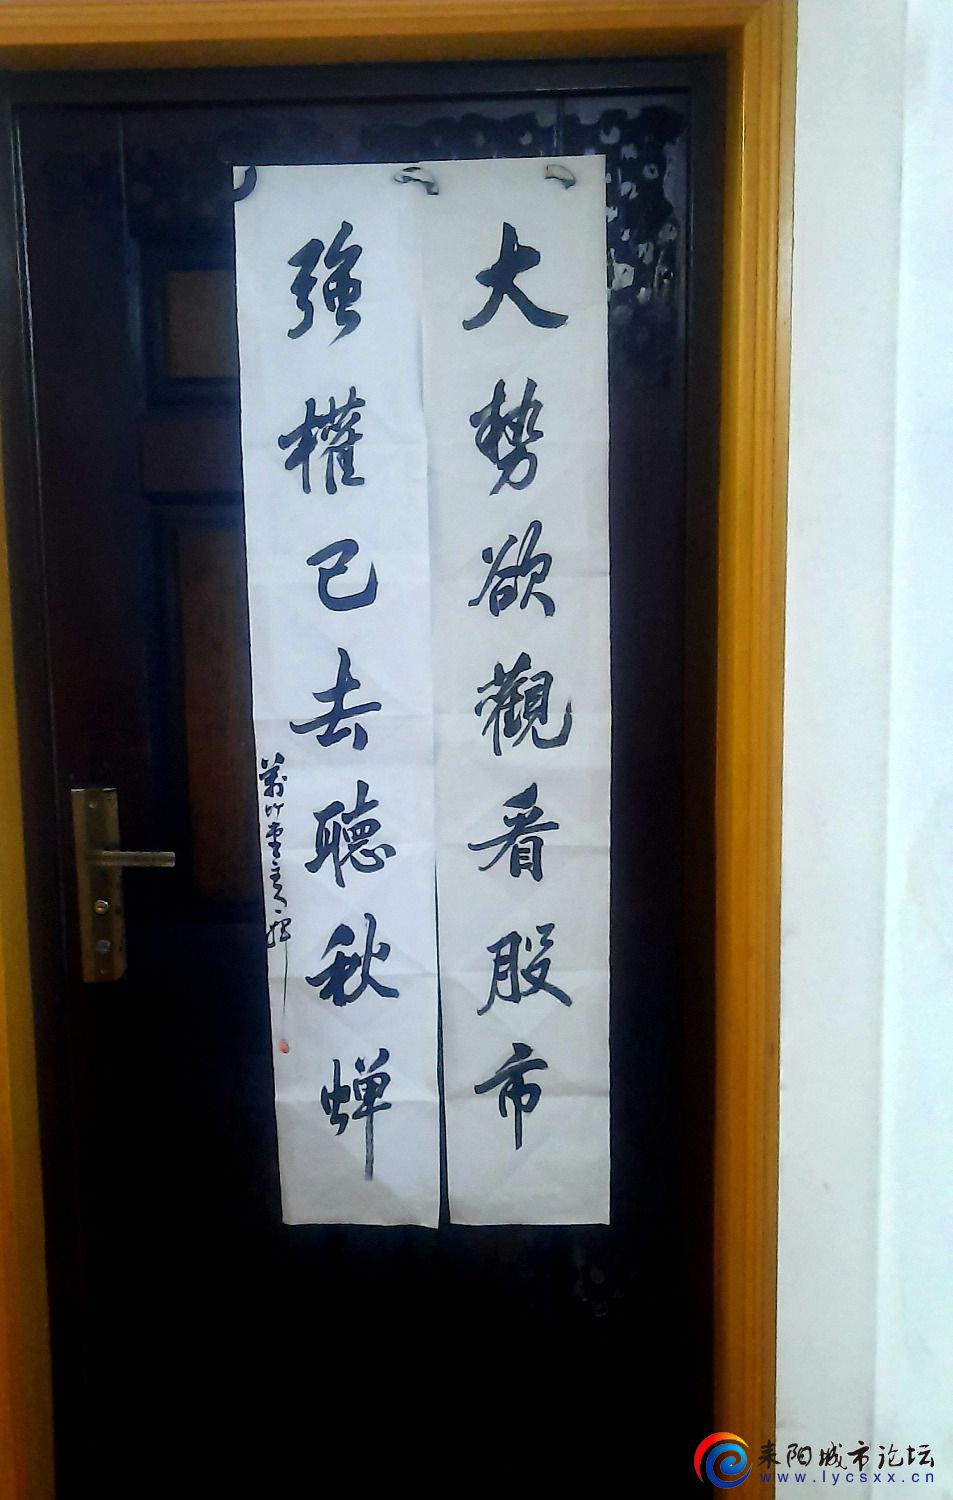 大勢欲觀看股市
強權已去聽秋蝉
萬竹堂主
耒阳城市论坛
www.lycsxx.cn